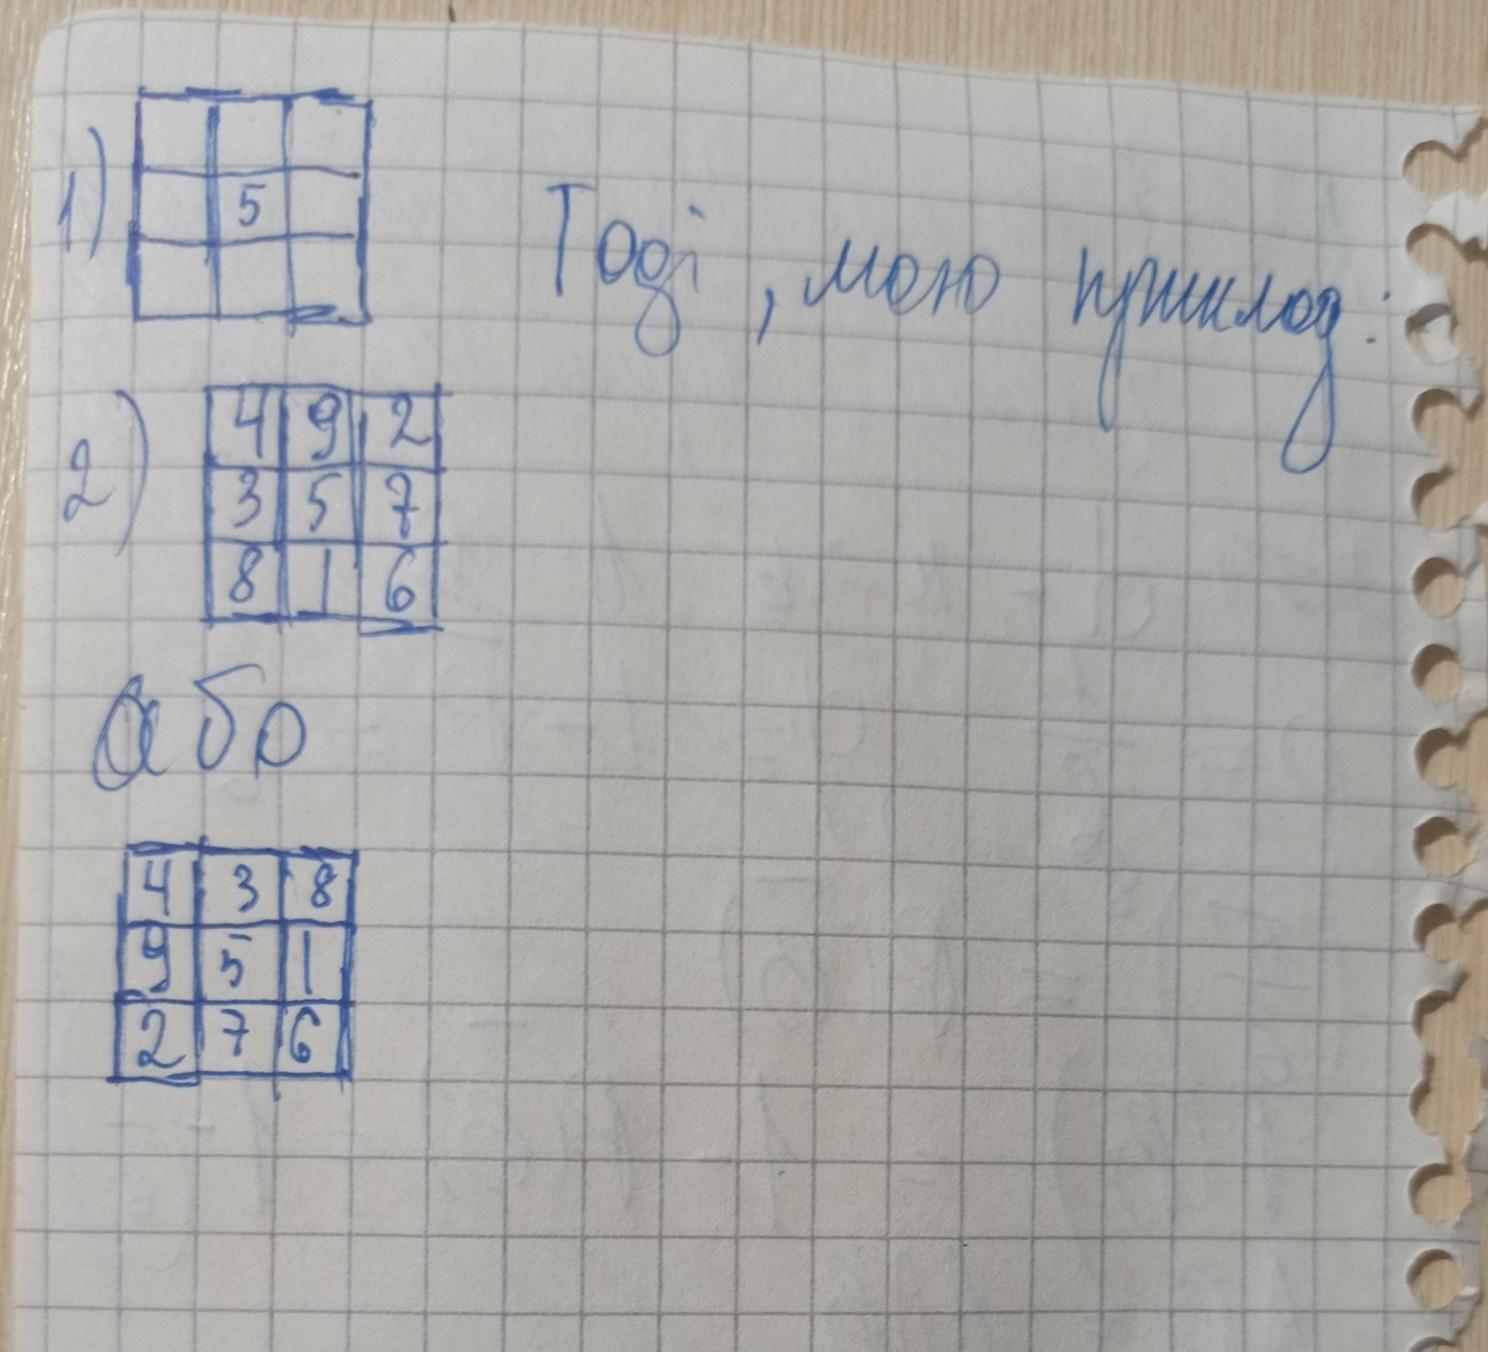 1)
5
Тоді, маю приклад:
2)
4 9 2
3 5 7
8 1 6
або
4 3 8
9 5 1
2 7 6